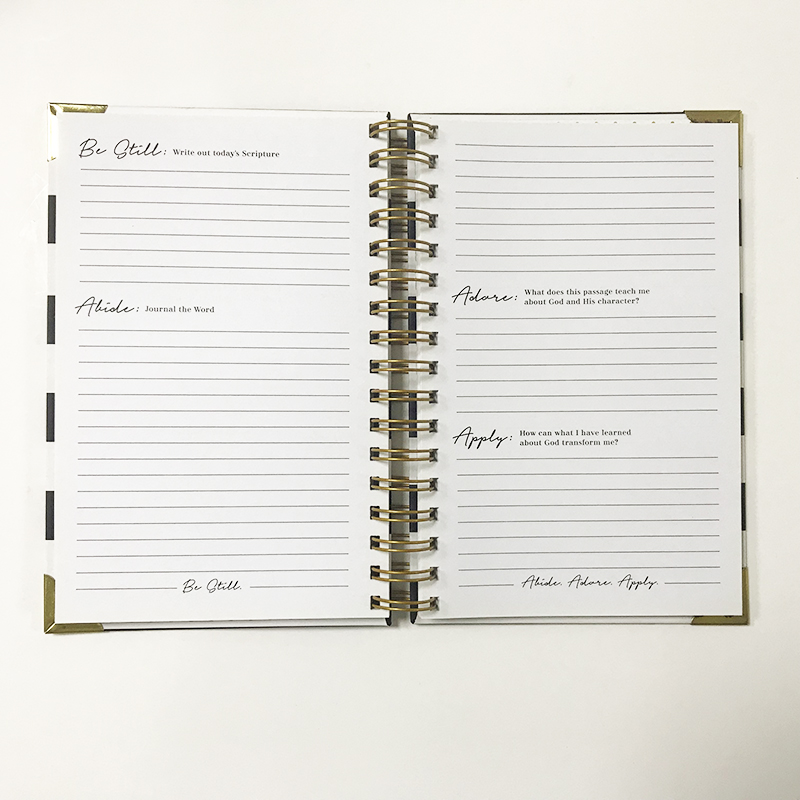 Be Still: Write out today's Scripture
Abide: Journal the Word
Be Still.
Adore: What does this passage teach me
about God and His character?
Apply: How can what I have learned
about God transform me?
Abide. Adore. Apply.